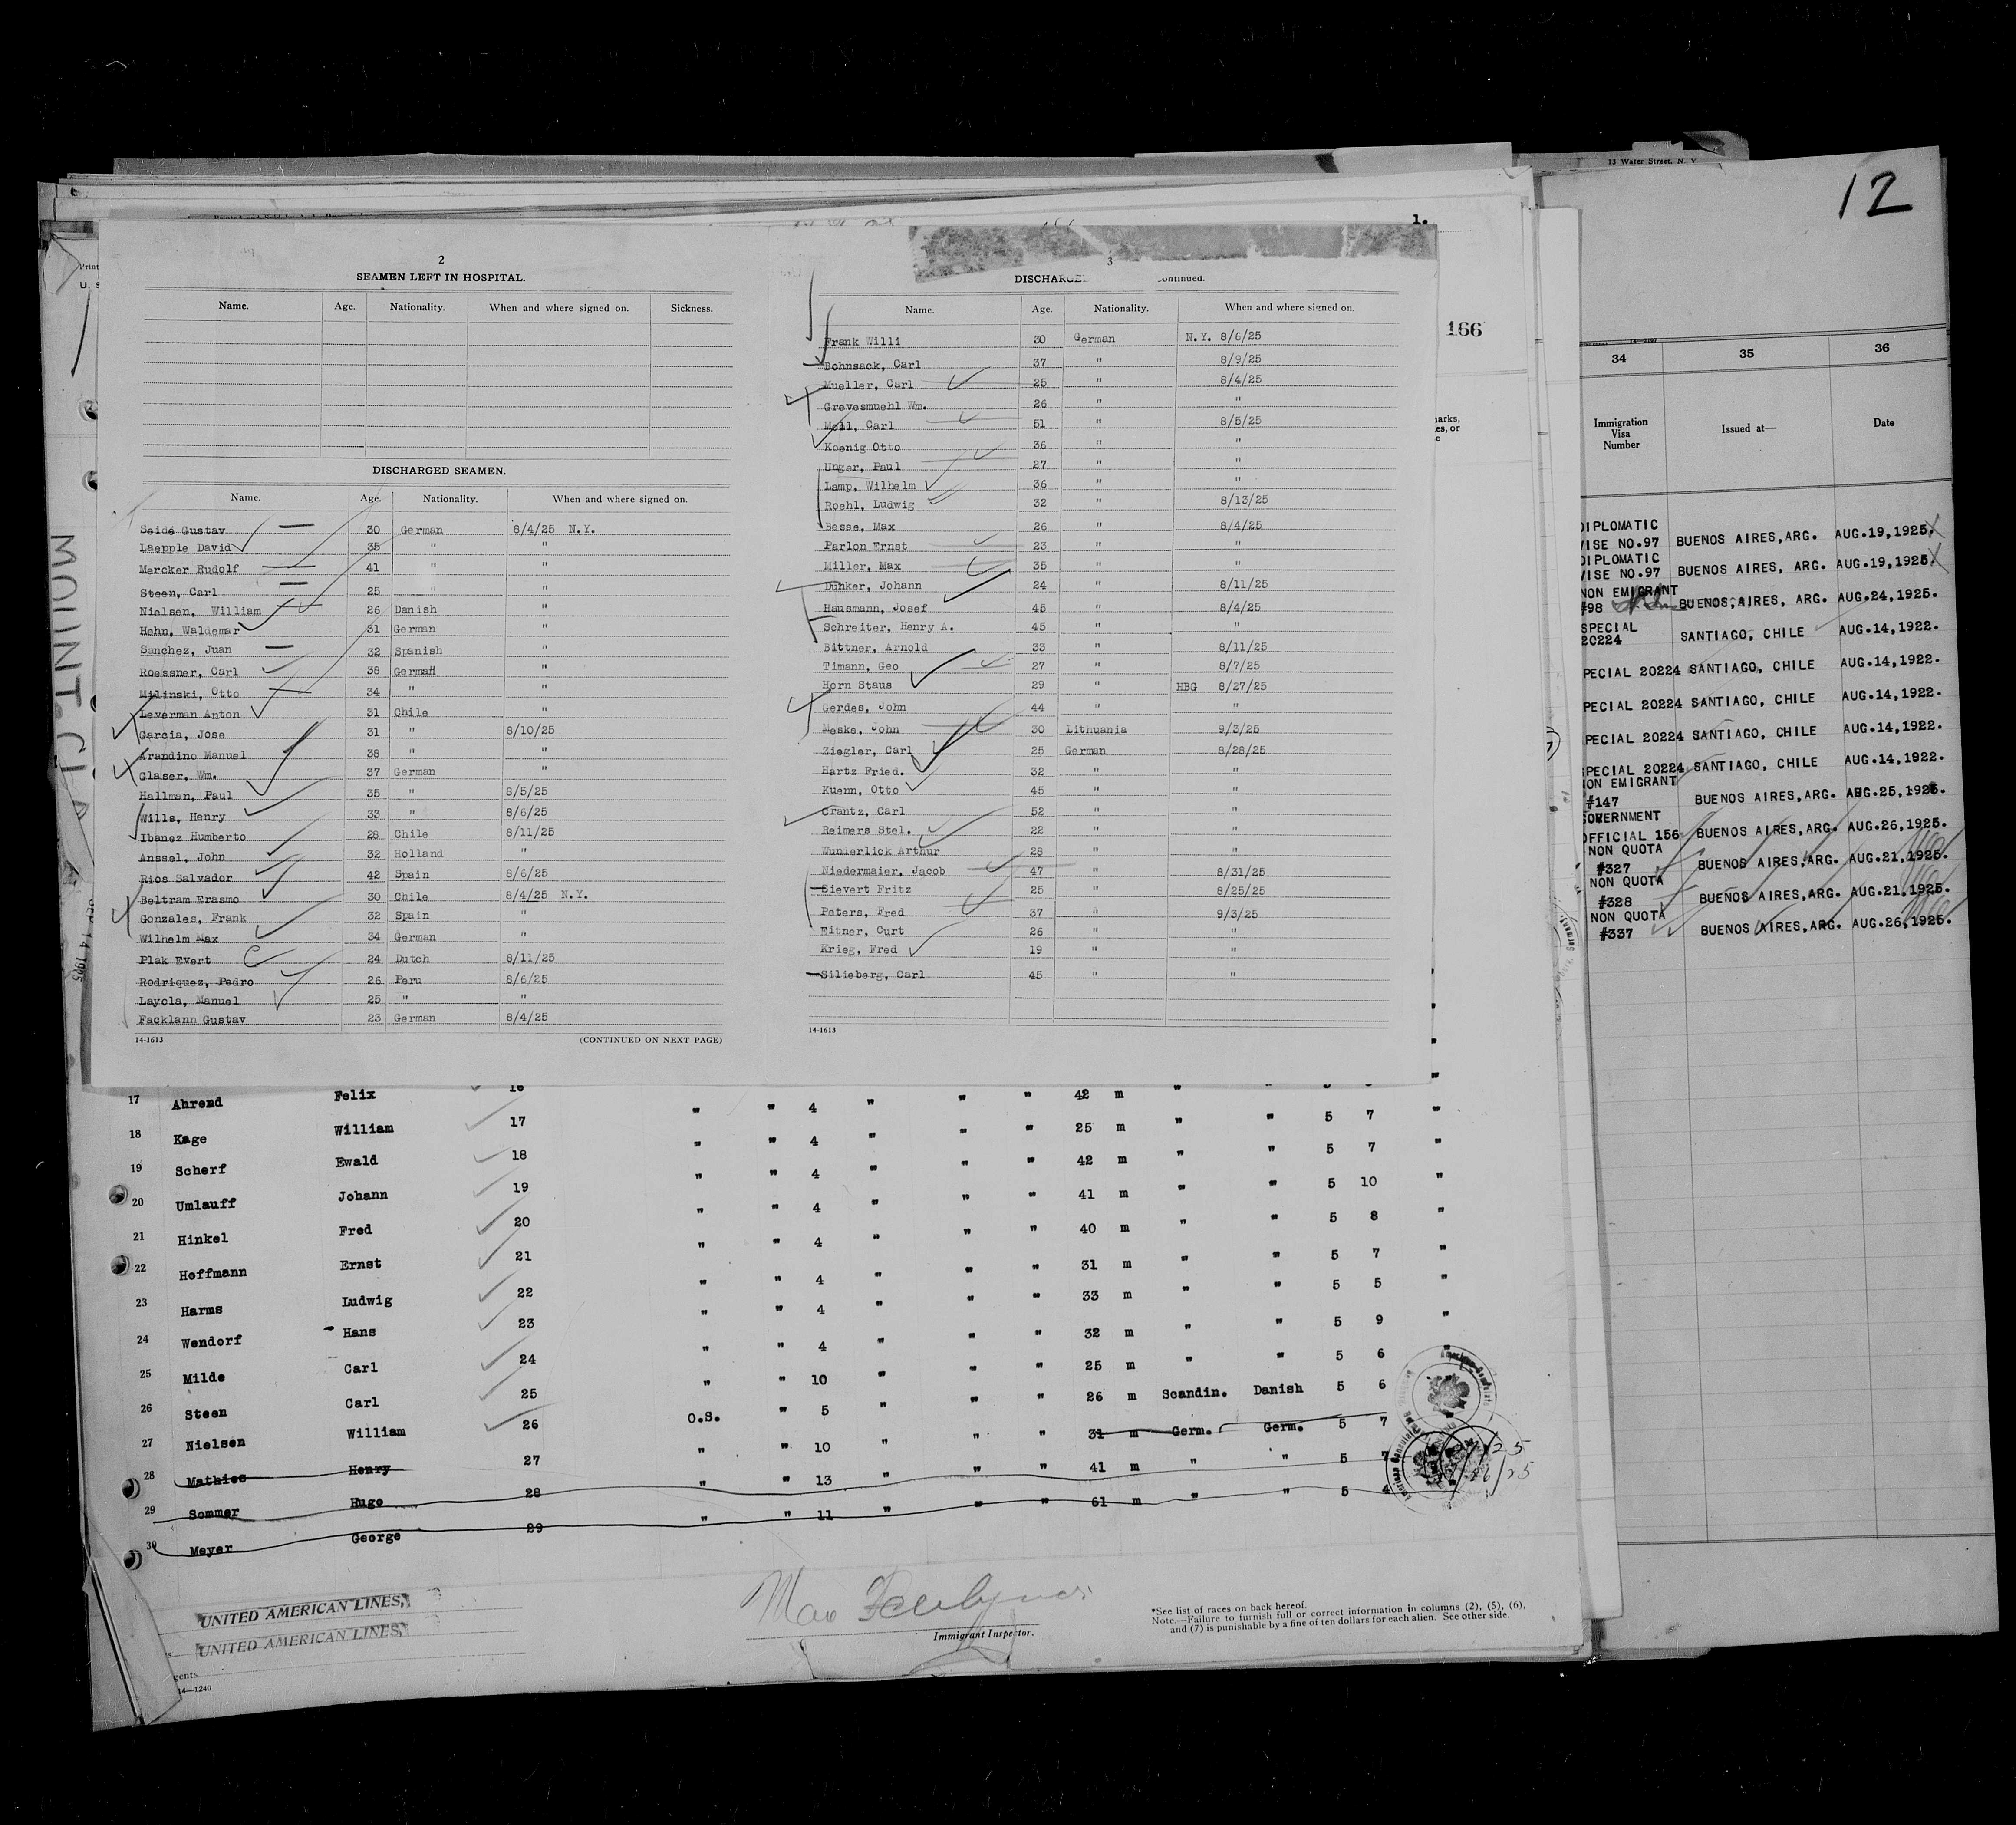 13 Water Street, N. Y
12
1.
166
2
SEAMEN LEFT IN HOSPITAL.
Name. Age. Nationality. When and where signed on. Sickness.
DISCHARGED SEAMEN.
Name. Age. Nationality. When and where signed on.
Seide Gustav 30 German 8/4/25 N.Y.
Laepple David 35 " "
Mercker Rudolf 41 " "
Steen, Carl 25 " "
Nielsen, William 26 Danish "
Hehn, Waldemar 31 German "
Sanchez, Juan 32 Spanish "
Roessner, Carl 38 German "
Milinski, Otto 34 " "
Leverman Anton 31 Chile "
Garcia, Jose 31 " 8/10/25
Arandino Manuel 38 " "
Glaser, Wm. 37 German "
Hallman, Paul 35 " 8/5/25
Wills, Henry 33 " 8/6/25
Ibanez Humberto 28 Chile 8/11/25
Anssel, John 32 Holland "
Rios Salvador 42 Spain 8/6/25
Beltram Erasmo 30 Chile 8/4/25 N.Y.
Gonzales, Frank 32 Spain "
Wilhelm Max 34 German "
Plak Evert 24 Dutch 8/11/25
Rodriquez, Pedro 26 Peru 8/6/25
Layola, Manuel 25 " "
Facklann Gustav 23 German 8/4/25
14-1613 (CONTINUED ON NEXT PAGE)
3
DISCHARGE ontinued.
Name. Age. Nationality. When and where signed on.
Frank Willi 30 German N.Y. 8/6/25
Bohnsack, Carl 37 " 8/9/25
Mueller, Carl 25 " 8/4/25
Grevesmuehl Wm. 26 " "
Moll, Carl 51 " 8/5/25
Koenig Otto 36 " "
Unger, Paul 27 " "
Lamp, Wilhelm 36 " "
Roehl, Ludwig 32 " 8/13/25
Besse, Max 26 " 8/4/25
Parlon Ernst 23 " "
Miller, Max 35 " "
Dunker, Johann 24 " 8/11/25
Hausmann, Josef 45 " 8/4/25
Schreiter, Henry A. 45 " "
Bittner, Arnold 33 " 8/11/25
Timann, Geo 27 " 8/7/25
Horn Staus 29 " HBG 8/27/25
Gerdes, John 44 " "
Meske, John 30 Lithuania 9/3/25
Ziegler, Carl 25 German 8/28/25
Hartz Fried. 32 " "
Kuenn, Otto 45 " "
Crantz, Carl 52 " "
Reimers Stel. 22 " "
Wunderlick Arthur 28 " "
Niedermaier, Jacob 47 " 8/31/25
Sievert Fritz 25 " 8/25/25
Peters, Fred 37 " 9/3/25
Eitner, Curt 26 " "
Krieg, Fred 19 " "
Silieberg, Carl 45 " "
14-1613
34 35 36
Immigration Visa Number Issued at— Date
DIPLOMATIC
VISE NO.97 BUENOS AIRES,ARG. AUG.19,1925.
DIPLOMATIC
VISE NO.97 BUENOS AIRES, ARG. AUG.19,1925.
NON EMIGRANT
#98 BUENOS,AIRES, ARG. AUG.24,1925.
SPECIAL
20224 SANTIAGO, CHILE AUG.14,1922.
PECIAL 20224 SANTIAGO, CHILE AUG.14,1922.
PECIAL 20224 SANTIAGO, CHILE AUG.14,1922.
PECIAL 20224 SANTIAGO, CHILE AUG.14,1922.
SPECIAL 20224 SANTIAGO, CHILE AUG.14,1922.
ON EMIGRANT
#147 BUENOS AIRES,ARG. AUG.25,1925.
GOVERNMENT
OFFICIAL 156 BUENOS AIRES,ARG. AUG.26,1925.
NON QUOTA
#327 BUENOS AIRES,ARG. AUG.21,1925.
NON QUOTA
#328 BUENOS AIRES,ARG. AUG.21,1925.
NON QUOTA
#337 BUENOS AIRES,ARG. AUG.26,1925.
MOUNT CL
17 Ahrend Felix 16 " " 4 " " " 42 m "
18 Kage William 17 " " 4 " " " 25 m " " 5 7 "
19 Scherf Ewald 18 " " 4 " " " 42 m " " 5 7 "
20 Umlauff Johann 19 " " 4 " " " 41 m " " 5 10 "
21 Hinkel Fred 20 " " 4 " " " 40 m " " 5 8 "
22 Hoffmann Ernst 21 " " 4 " " " 31 m " " 5 7 "
23 Harms Ludwig 22 " " 4 " " " 33 m " " 5 5 "
24 Wendorf Hans 23 " " 4 " " " 32 m " " 5 9 "
25 Milde Carl 24 " " 10 " " " 25 m " " 5 6 "
26 Steen Carl 25 O.S. " 5 " " " 26 m Scandin. Danish 5 6
27 Nielsen William 26 " " 10 " " " 31 m Germ. Germ. 5 7
28 Mathies Henry 27 " " 13 " " " 41 m " " 5 7
29 Sommer Hugo 28 " " 11 " " " 61 m " " 5 4
30 Meyer George 29
UNITED AMERICAN LINES,
UNITED AMERICAN LINES,
gents
14—1240
Max
Immigrant Inspector.
*See list of races on back hereof.
Note.—Failure to furnish full or correct information in columns (2), (5), (6),
and (7) is punishable by a fine of ten dollars for each alien. See other side.